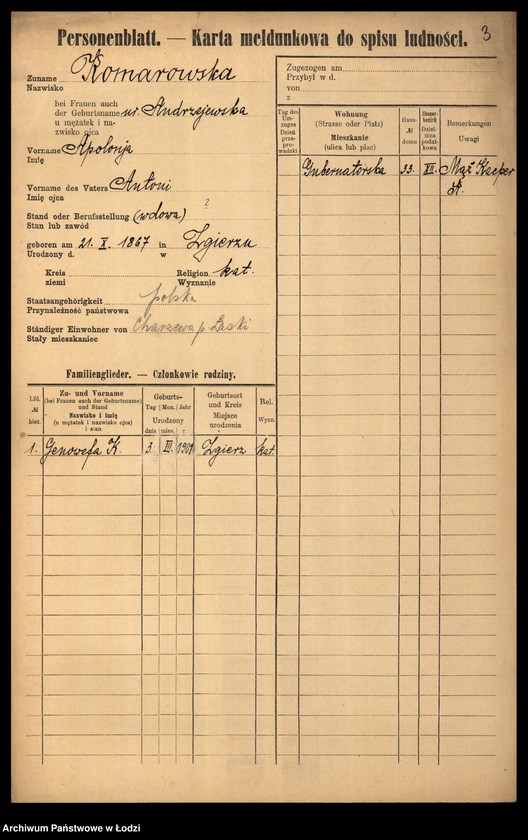 Personenblatt. — Karta meldunkowa do spisu ludności. 3
Zuname Komarowska
Nazwisko
bei Frauen auch
der Geburtsname ur. Andrzejewska
u mężatek i na-
zwisko ojca
Vorname Apolonja
Imię
Vorname des Vaters Antoni
Imię ojca
Stand oder Berufsstellung (wdowa) ?
Stan lub zawód
geboren am 21. X. 1867 in Zgierzu
Urodzony d. w
Kreis Religion kat.
ziemi Wyznanie
Staatsangehörigkeit polska
Przynależność państwowa
Ständiger Einwohner von p. Łaski
Stały mieszkaniec
Zugezogen am
Przybył w d.
von
z
Tag des Um-zuges Dzień prze-pro-wadzki
Wohnung
(Strasse oder Platz)
Mieszkanie
(ulica lub plac)
Haus- № domu
Steuer-bezirk Dziel-nica podat-kowa
Bemerkungen
Uwagi
Gubernatorska 33. VII. Mąż Kacper
K.
Familienglieder. — Członkowie rodziny.
Lfd. № bież.
Zu- und Vorname
(bei Frauen auch der Geburtsname)
und Stand
Nazwisko i imię
(u mężatek i nazwisko ojca)
i stan
Geburts-
Tag Mon. Jahr
Urodzony
dnia mies. r.
Geburtsort
und Kreis
Miejsce
urodzenia
Rel.
Wyzn.
1. Genowefa K. 3. III. 1901 Zgierz kat.
Archiwum Państwowe w Łodzi